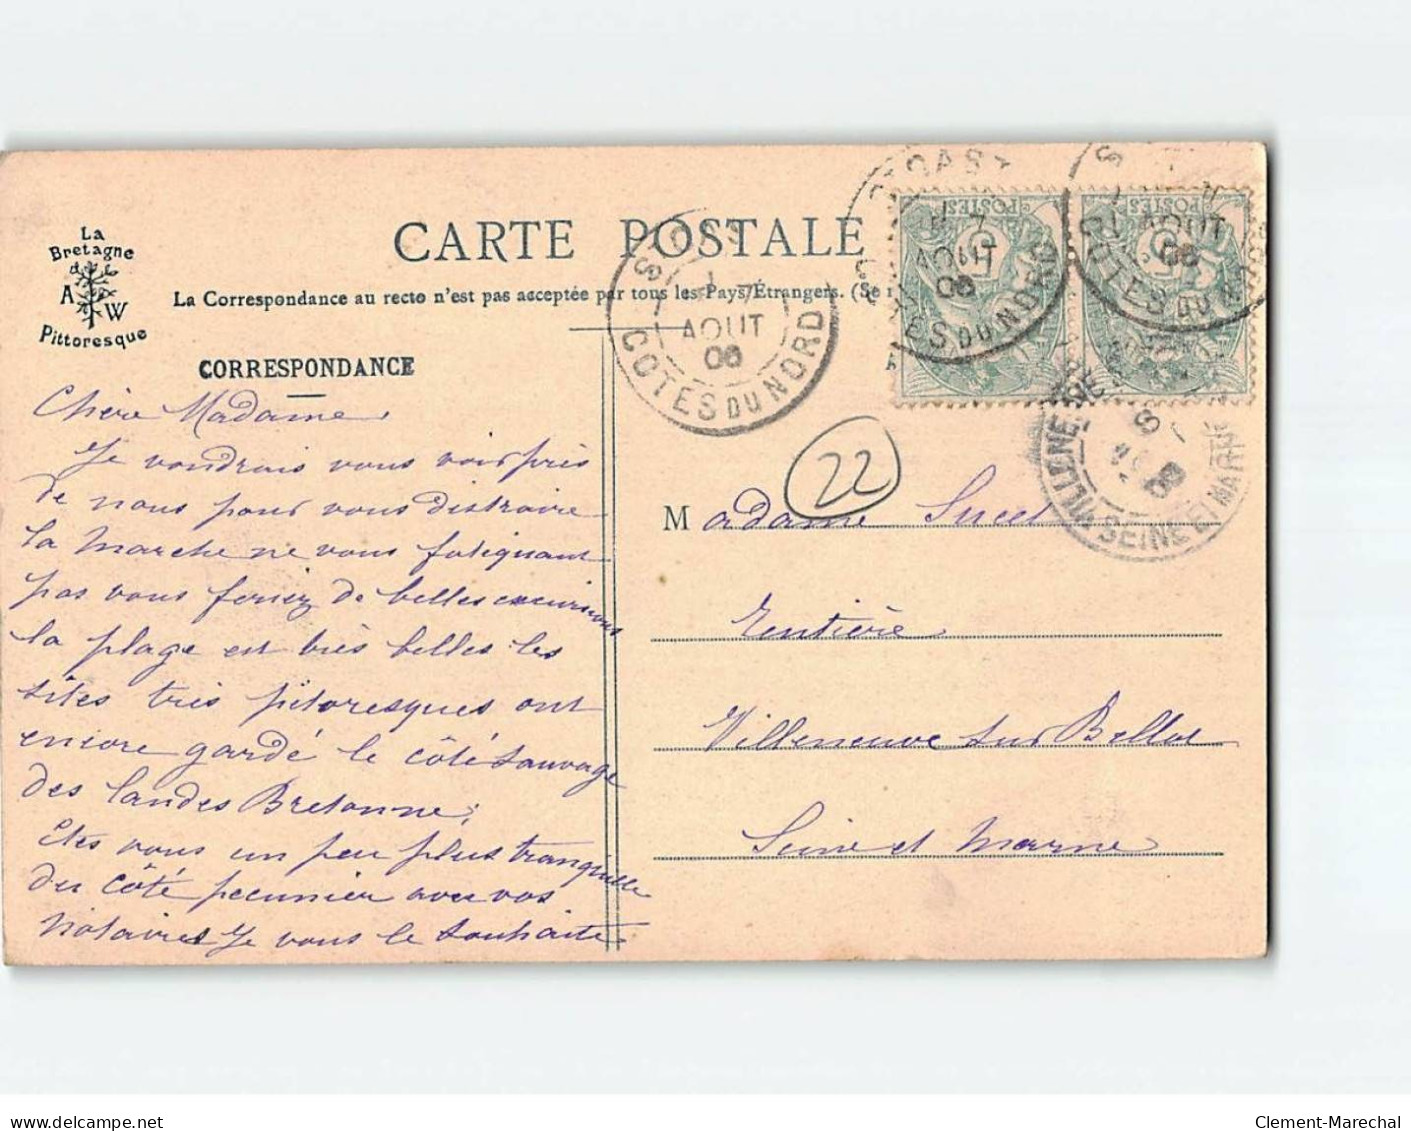 La
Bretagne
A W
Pittoresque
CARTE POSTALE
La Correspondance au recto n'est pas acceptée par tous les Pays Étrangers. (Se
CORRESPONDANCE
Chère Madame,
Je voudrais vous voir près
de nous pour vous distraire
la marche ne vous fatiguant
pas vous feriez de belles excursions
la plage est très belles les
sites très pitoresques ont
encore gardé le côté sauvage
des landes Bretonne,
Etes vous un peu plus tranquille
du côté pecunier avec vos
notaires Je vous le souhaite
22
Madame
Rentière
Villeneuve sur Bellot
Seine et Marne
POSTES
5
POSTES
5
7
AOUT
06
COTES DU NORD
7
AOUT
06
COTES DU NORD
AOUT
06
COTES DU NORD
SEINE ET MARNE
8
Clement-Marechal